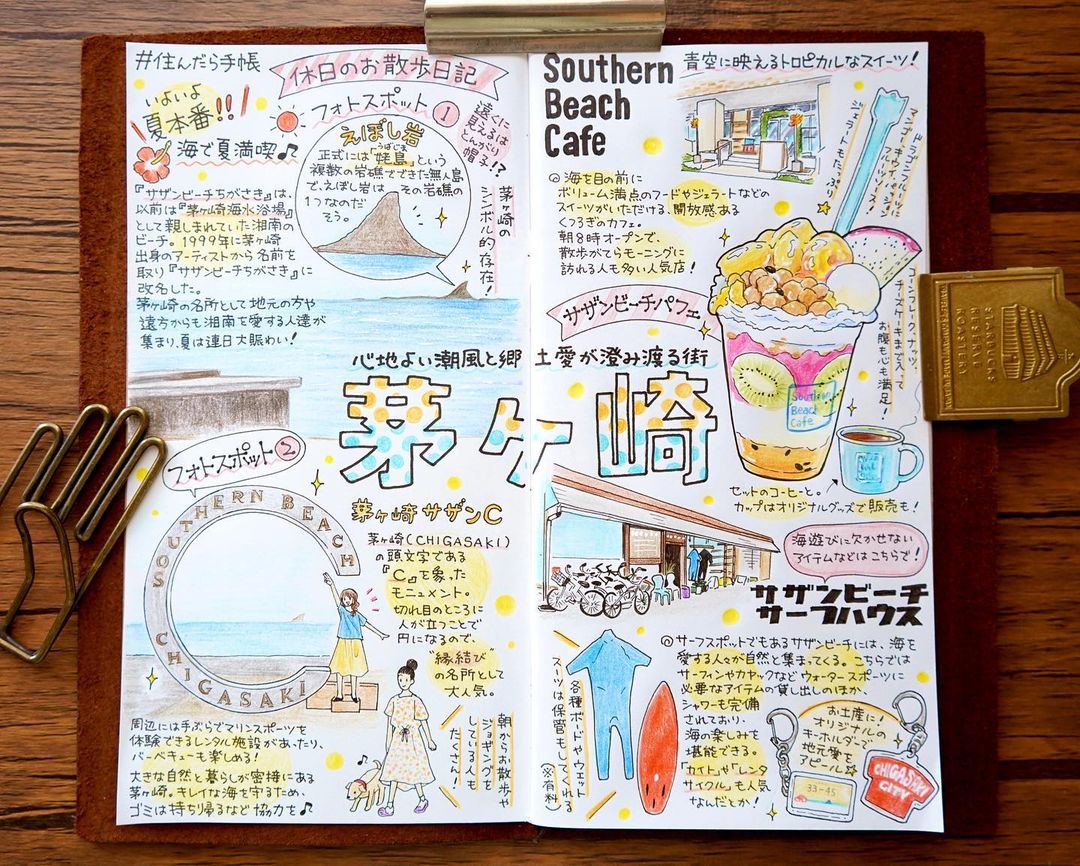 #住んだら手帳
休日のお散歩日記
いよいよ
夏本番!!
海で夏満喫♪
『サザンビーチちがさき』は、
以前は『茅ヶ崎海水浴場』
として親しまれていた湘南の
ビーチ。1999年に茅ヶ崎
出身のアーティストから名前を
取り『サザンビーチちがさき』に
改名した。
茅ヶ崎の名所として地元の方や
遠方からも湘南を愛する人達が
集まり、夏は連日大賑わい!
フォトスポット①
えぼし岩
正式には「姥島」という
うばじま
複数の岩礁でできた無人島
で、えぼし岩は その岩礁の
1つなのだ
そう。
遠くに
見えるは
とんがり
帽子!?
茅ヶ崎の
シンボル的存在!
心地よい潮風と郷土愛が澄み渡る街
茅ヶ崎
フォトスポット②
SOUTHERN BEACH
CHIGASAKI
茅ヶ崎サザンC
茅ヶ崎(CHIGASAKI)
の頭文字である
『C』を象った
モニュメント。
切れ目のところに
人が立つことで
円になるので、
"縁結び"
の名所として
大人気。
朝からお散歩や
ジョギングを
している人も
たくさん!
周辺には手ぶらでマリンスポーツを
体験できるレンタル施設があったり、
バーベキューも楽しめる!
大きな自然と暮らしが密接にある
茅ヶ崎。キレイな海を守るため、
ゴミは持ち帰るなど協力を♪
Southern
Beach
Cafe
青空に映えるトロピカルなスイーツ!
海を目の前に
ボリューム満点のフードやジェラートなどの
スイーツがいただける、開放感ある
くつろぎのカフェ。
朝8時オープンで、
散歩がてらモーニングに
訪れる人も多い人気店!
サザンビーチパフェ
ドラゴンフルーツに
マンゴー、キウイ、パイン!
フルーツゾーン!
ジェラートもたっぷり
コーンフレーク、ナッツ、
チーズケーキまで入って
お腹も心も満足!
Southern
Beach
Cafe
セットのコーヒーと。
カップはオリジナルグッズで販売も!
海遊びに欠かせない
アイテムなどはこちらで!
サザンビーチ
サーフハウス
サーフスポットでもあるサザンビーチには、海を
愛する人々が自然と集まってくる。こちらでは
サーフィンやカヤックなどウォータースポーツに
必要なアイテムの貸し出しのほか、
シャワーも完備
されており、
海の楽しみを
堪能できる。
「カイト」や「レンタ
サイクル」も人気
なんだとか!
各種ボードやウェット
スーツは保管もしてくれる
(※有料)
お土産に!
オリジナルの
キーホルダーで
地元愛を
アピール☆
33-45
CHIGASAKI
CITY
STARBUCKS
RESERVE
ROASTERY